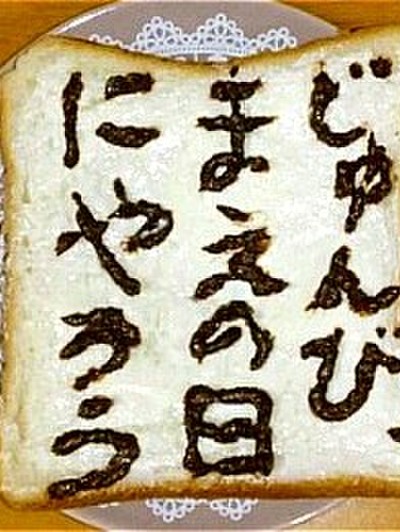 じゅんび
まえの日
にやろう